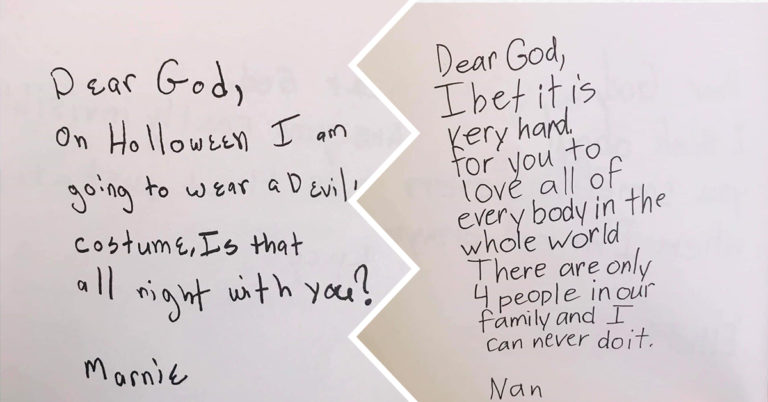 Dear God,
On Holloween I am
going to wear a Devil
costume, Is that
all night with you?
Marnie
Dear God,
I bet it is
very hard.
for you to
love all of
every body in the
whole world
There are only
4 people in our
family and I
can never do it.
Nan